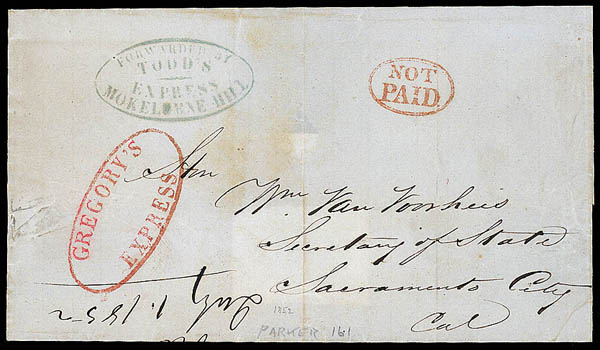 FORWARDED BY
TODD'S
EXPRESS
MOKELUMNE HILL
NOT
PAID
GREGORY'S
EXPRESS
Hon
Wm Van Voorheis
Secretary of State
Sacramento City
Cal
1852
PARKER 161